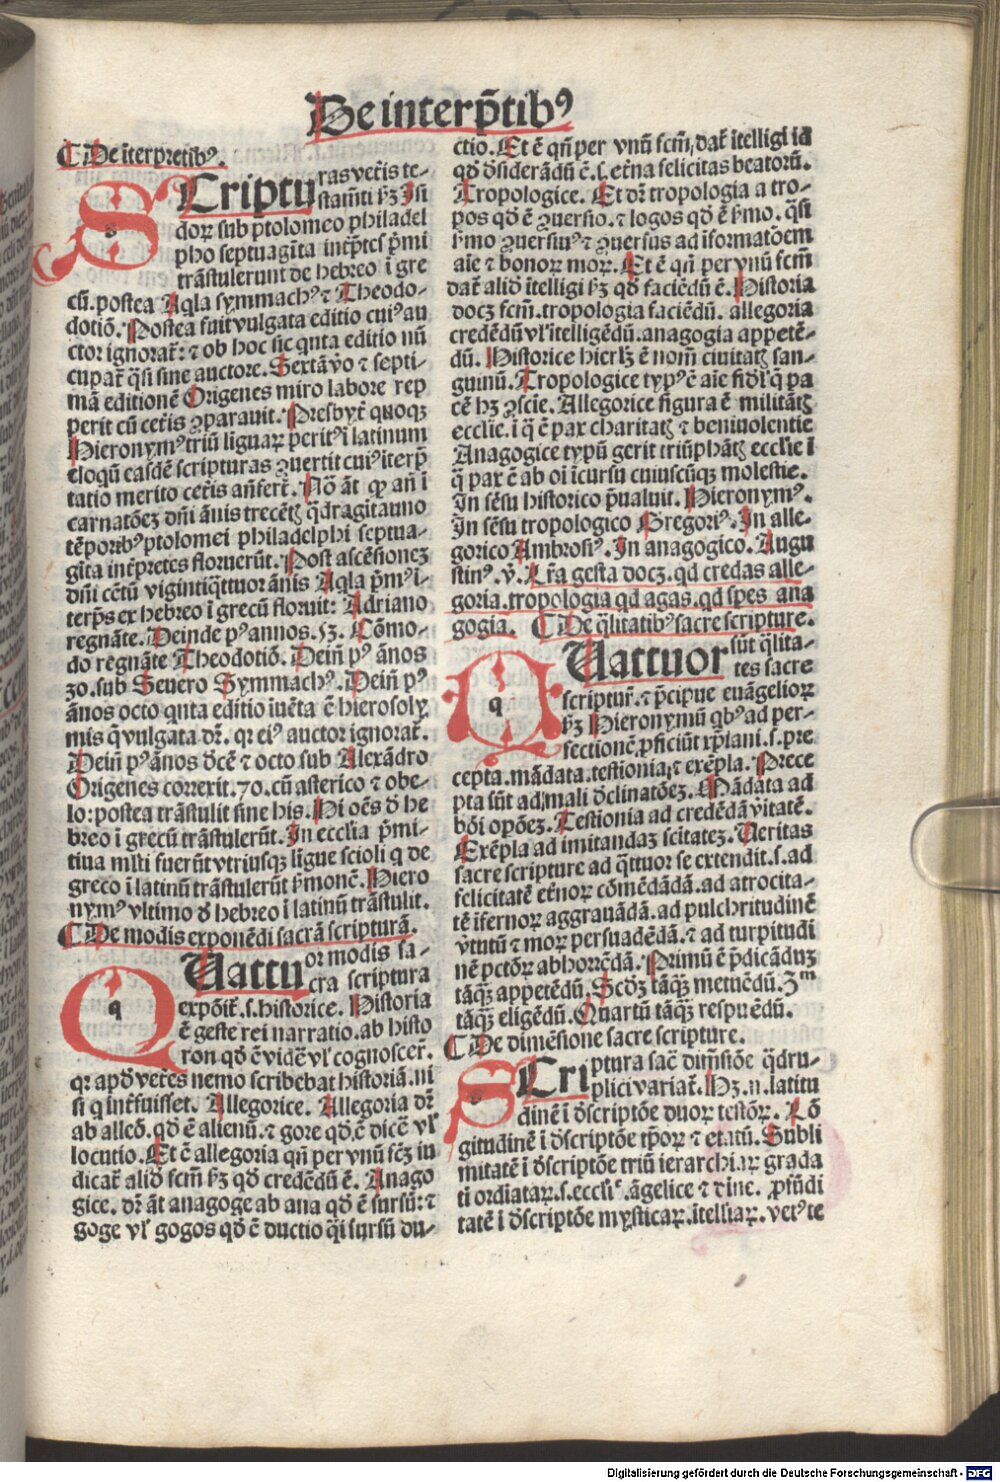 De interp̄tibꝰ
⁋ De īterpretibꝰ.
Scripturas veťis te-
stam̄ti ẜꝫ Isi
doꝝ sub ptolomeo philadel
pho septuagīta int̄p̄tes p̄mi
trāstulerunt de hebreo ī gre
cū. postea Aq̄la symmachꝰ ⁊ Theodo-
dotiō. Postea fuit vulgata editio cuiꝰ au
ctor ignorat̄: ⁊ ob hoc sic qnta editio nū
cupat̄ q̄si sine auctore. Sextā v̊o ⁊ septi-
mā editionē Origenes miro labore rep
perit cū cet̄is ꝯparauit. Presbyt̄ quoqꝫ
Hieronymꝰ triū liguaꝝ peritꝰ ī latinum
eloqū easdē scripturas ꝯuertit cuiꝰ iterp̄
tatio merito cet̄is an̄fert̄. Nō āt qꝛ an̄ ī
carnatōeꝫ dn̄i ānis trecētꝭ q̄dragītauno
tēporibꝰ ptolomei philadelphi septua-
gīta int̄pretes floruerūt. Post ascēsioneꝫ
dn̄i cētū vigintiq̄ttuor ānis Aq̄la p̄mꝰ ī-
terp̄s ex hebreo ī grecū floruit: Adriano
regnāte. Deinde pꝰ annos .53. Cōmo-
do regnāte Theodotiō. Dein̄ pꝰ ānos
30. sub Seuero Symmachꝰ. Dein̄ pꝰ
ānos octo qnta editio iuēta ē hierosoly
mis q̄ vulgata dr̄. qꝛ eiꝰ auctor ignorat̄.
Dein̄ pꝰ ānos dēcē ⁊ octo sub Alexādro
Origenes correxit .70. cū asterico ⁊ obe-
lo: postea trāstulit sine his. Hi oēs ď he
breo ī grecū trāstulerūt. In ecclīa p̄mi-
tiua ml̄ti fuerūt vtriusqꝫ ligue scioli q de
greco ī latinū trāstulerūt ẜmonē. Hiero
nymꝰ vltimo ď hebreo ī latinū trāstulit.
⁋ De modis exponēdi sacrā scripturā.
Quattuor modis sa-
cra scriptura
expōit̄. s. historice. Historia
ē geste rei narratio. ab histo
ron qď ē vidē vł cognoscer̄.
qꝛ apď vet̄es nemo scribebat historiā. ni
si q int̄fuisset. Allegorice. Allegoria dr̄
ab alleō. qď ē alienū. ⁊ gore qď. ē dicē vł
locutio. Et ē allegoria qn̄ per vnū fc̄ꝫ in
dicat̄ aliď fcm̄ ẜꝫ qď credēdū ē. Anago
gice. dr̄ āt anagoge ab ana qď ē sursū: ⁊
goge vł gogos qď ē ductio q̄i sursū du-
ctio. Et ē qn̄ per vnū fcm̄, dat̄ ītelligi id
qď ďsiderādū ē. i. et̄na felicitas beatoꝝ.
Tropologice. Et dr̄ tropologia a tro-
pos qď ē ꝯuersio. ⁊ logos qď ē ẜmo. q̄si
ẜmo ꝯuersiuꝰ ⁊ ꝯuersus ad īformatōem
aīe ⁊ bonoꝝ moꝝ. Et ē qn̄ per vnū fcm̄
dat̄ aliď ītelligi ẜꝫ qď faciēdū ē. Historia
docꝫ fcm̄. tropologia faciēdū. allegoria
credēdū vł ītelligēdū. anagogia appetē-
dū. Historice hierłꝫ ē nom̄ ciuitatꝭ san-
guinū. Tropologice typꝰ ē aīe fidł q̄ pa
cē hꝫ ꝯscīe. Allegorice figura ē militātꝭ
ecclīe. ī q̄ ē pax charitatꝭ ⁊ beniuolentie
Anagogice typū gerit triūphātꝭ ecclīe ī
q̄ pax ē ab oī īcursu cuiuscūqꝫ molestie.
In sēsu historico p̄ualuit. Hieronymꝰ.
In sēsu tropologico Gregoriꝰ. In alle-
gorico Ambrosiꝰ. In anagogico. Augu
stinꝰ. v̊. Lr̄a gesta docꝫ. qď credas alle-
goria. tropologia qď agas. qď spes ana
gogia. ⁋ De q̄litatibꝰ sacre scripture.
Quattuor sūt q̄lita-
tes sacre
scriptur̄. ⁊ p̄cipue euāgelioꝝ
ẜꝫ Hieronymū qbꝰ ad per-
fectionē ꝓficiūt xp̄iani. s. pre
cepta. mādata. testionia, ⁊ exēpla. Prece
pta sūt ad mali ďclinatōeꝫ. Mādata ad
bōi opōeꝫ. Testionia ad credēdā v̊itatē.
Exēpla ad imitandaꝫ scitateꝫ. Veritas
sacre scripture ad q̄ttuor se extendit. s. ad
felicitatē et̄noꝝ cōmēdādā. ad atrocita-
tē īfernoꝝ aggrauādā. ad pulchritudinē
v̊tutū ⁊ moꝝ persuadēdā. ⁊ ad turpitudi
nē pctōꝝ abhorrēdā. Primū ē p̄dicāduꝫ
tāqꝫ appetēdū, Scďꝫ tāqꝫ metuēdū. 3ᵐ
tāqꝫ eligēdū. Quartū tāqꝫ respuēdū.
⁋ De dimēsione sacre scripture.
Scriptura sac̄ dim̄siōe q̄dru-
plici variat̄. Hꝫ .n. latitu
dinē ī ďscriptōe duoꝝ testōꝝ. Lō
gitudinē ī ďscriptōe tp̄oꝝ ⁊ etatū. Subli
mitatē ī ďscriptōe triū ierarchiaꝝ grada
ti ordīataꝝ. s. ecclīᵉ. āgelice ⁊ dīne. ꝓfūdi
tatē ī ďscriptōe mysticaꝝ. ītelłiaꝝ. vetꝰ te
Digitalisierung gefördert durch die Deutsche Forschungsgemeinschaft - DFG